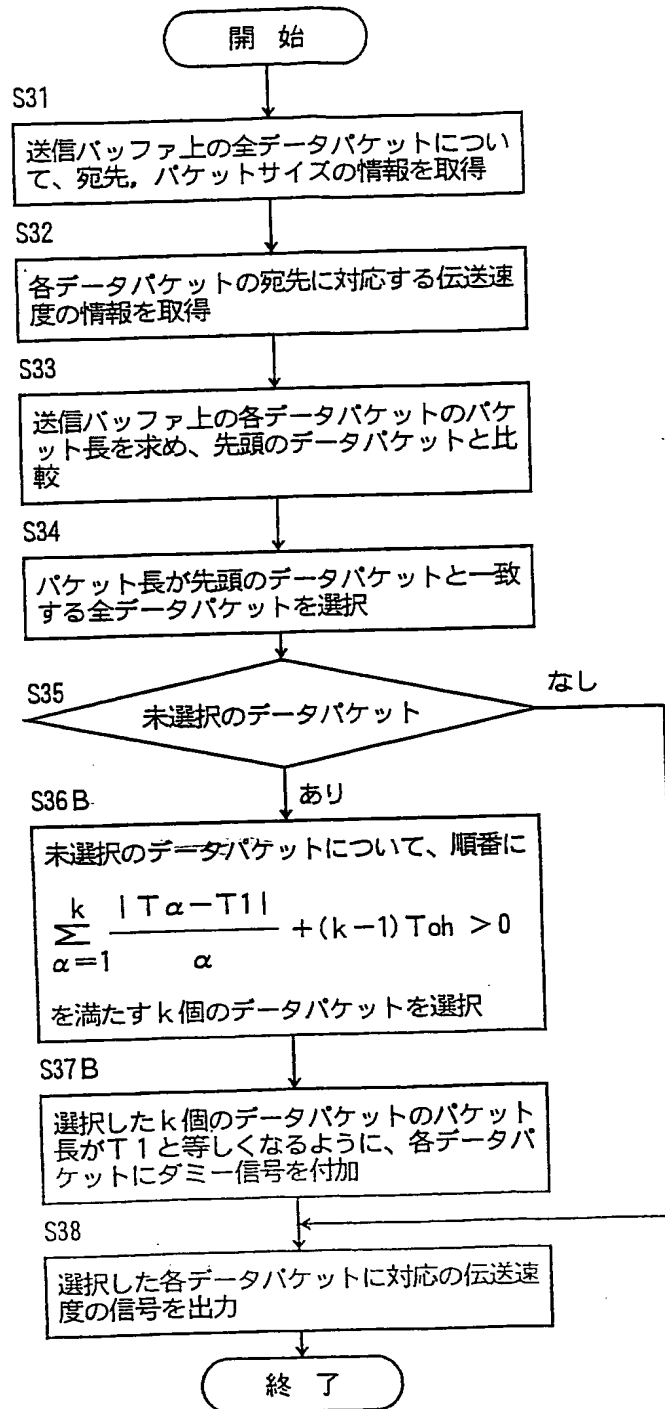 開 始
S31
送信バッファ上の全データパケットについ
て、宛先，パケットサイズの情報を取得
S32
各データパケットの宛先に対応する伝送速
度の情報を取得
S33
送信バッファ上の各データパケットのパケ
ット長を求め、先頭のデータパケットと比
較
S34
パケット長が先頭のデータパケットと一致
する全データパケットを選択
S35
未選択のデータパケット
なし
あり
S36B
未選択のデータパケットについて、順番に
k
∑ |Tα−T1| / α +(k−1)Toh >0
α=1
を満たすk個のデータパケットを選択
S37B
選択したk個のデータパケットのパケット
長がT1と等しくなるように、各データパ
ケットにダミー信号を付加
S38
選択した各データパケットに対応の伝送速
度の信号を出力
終 了